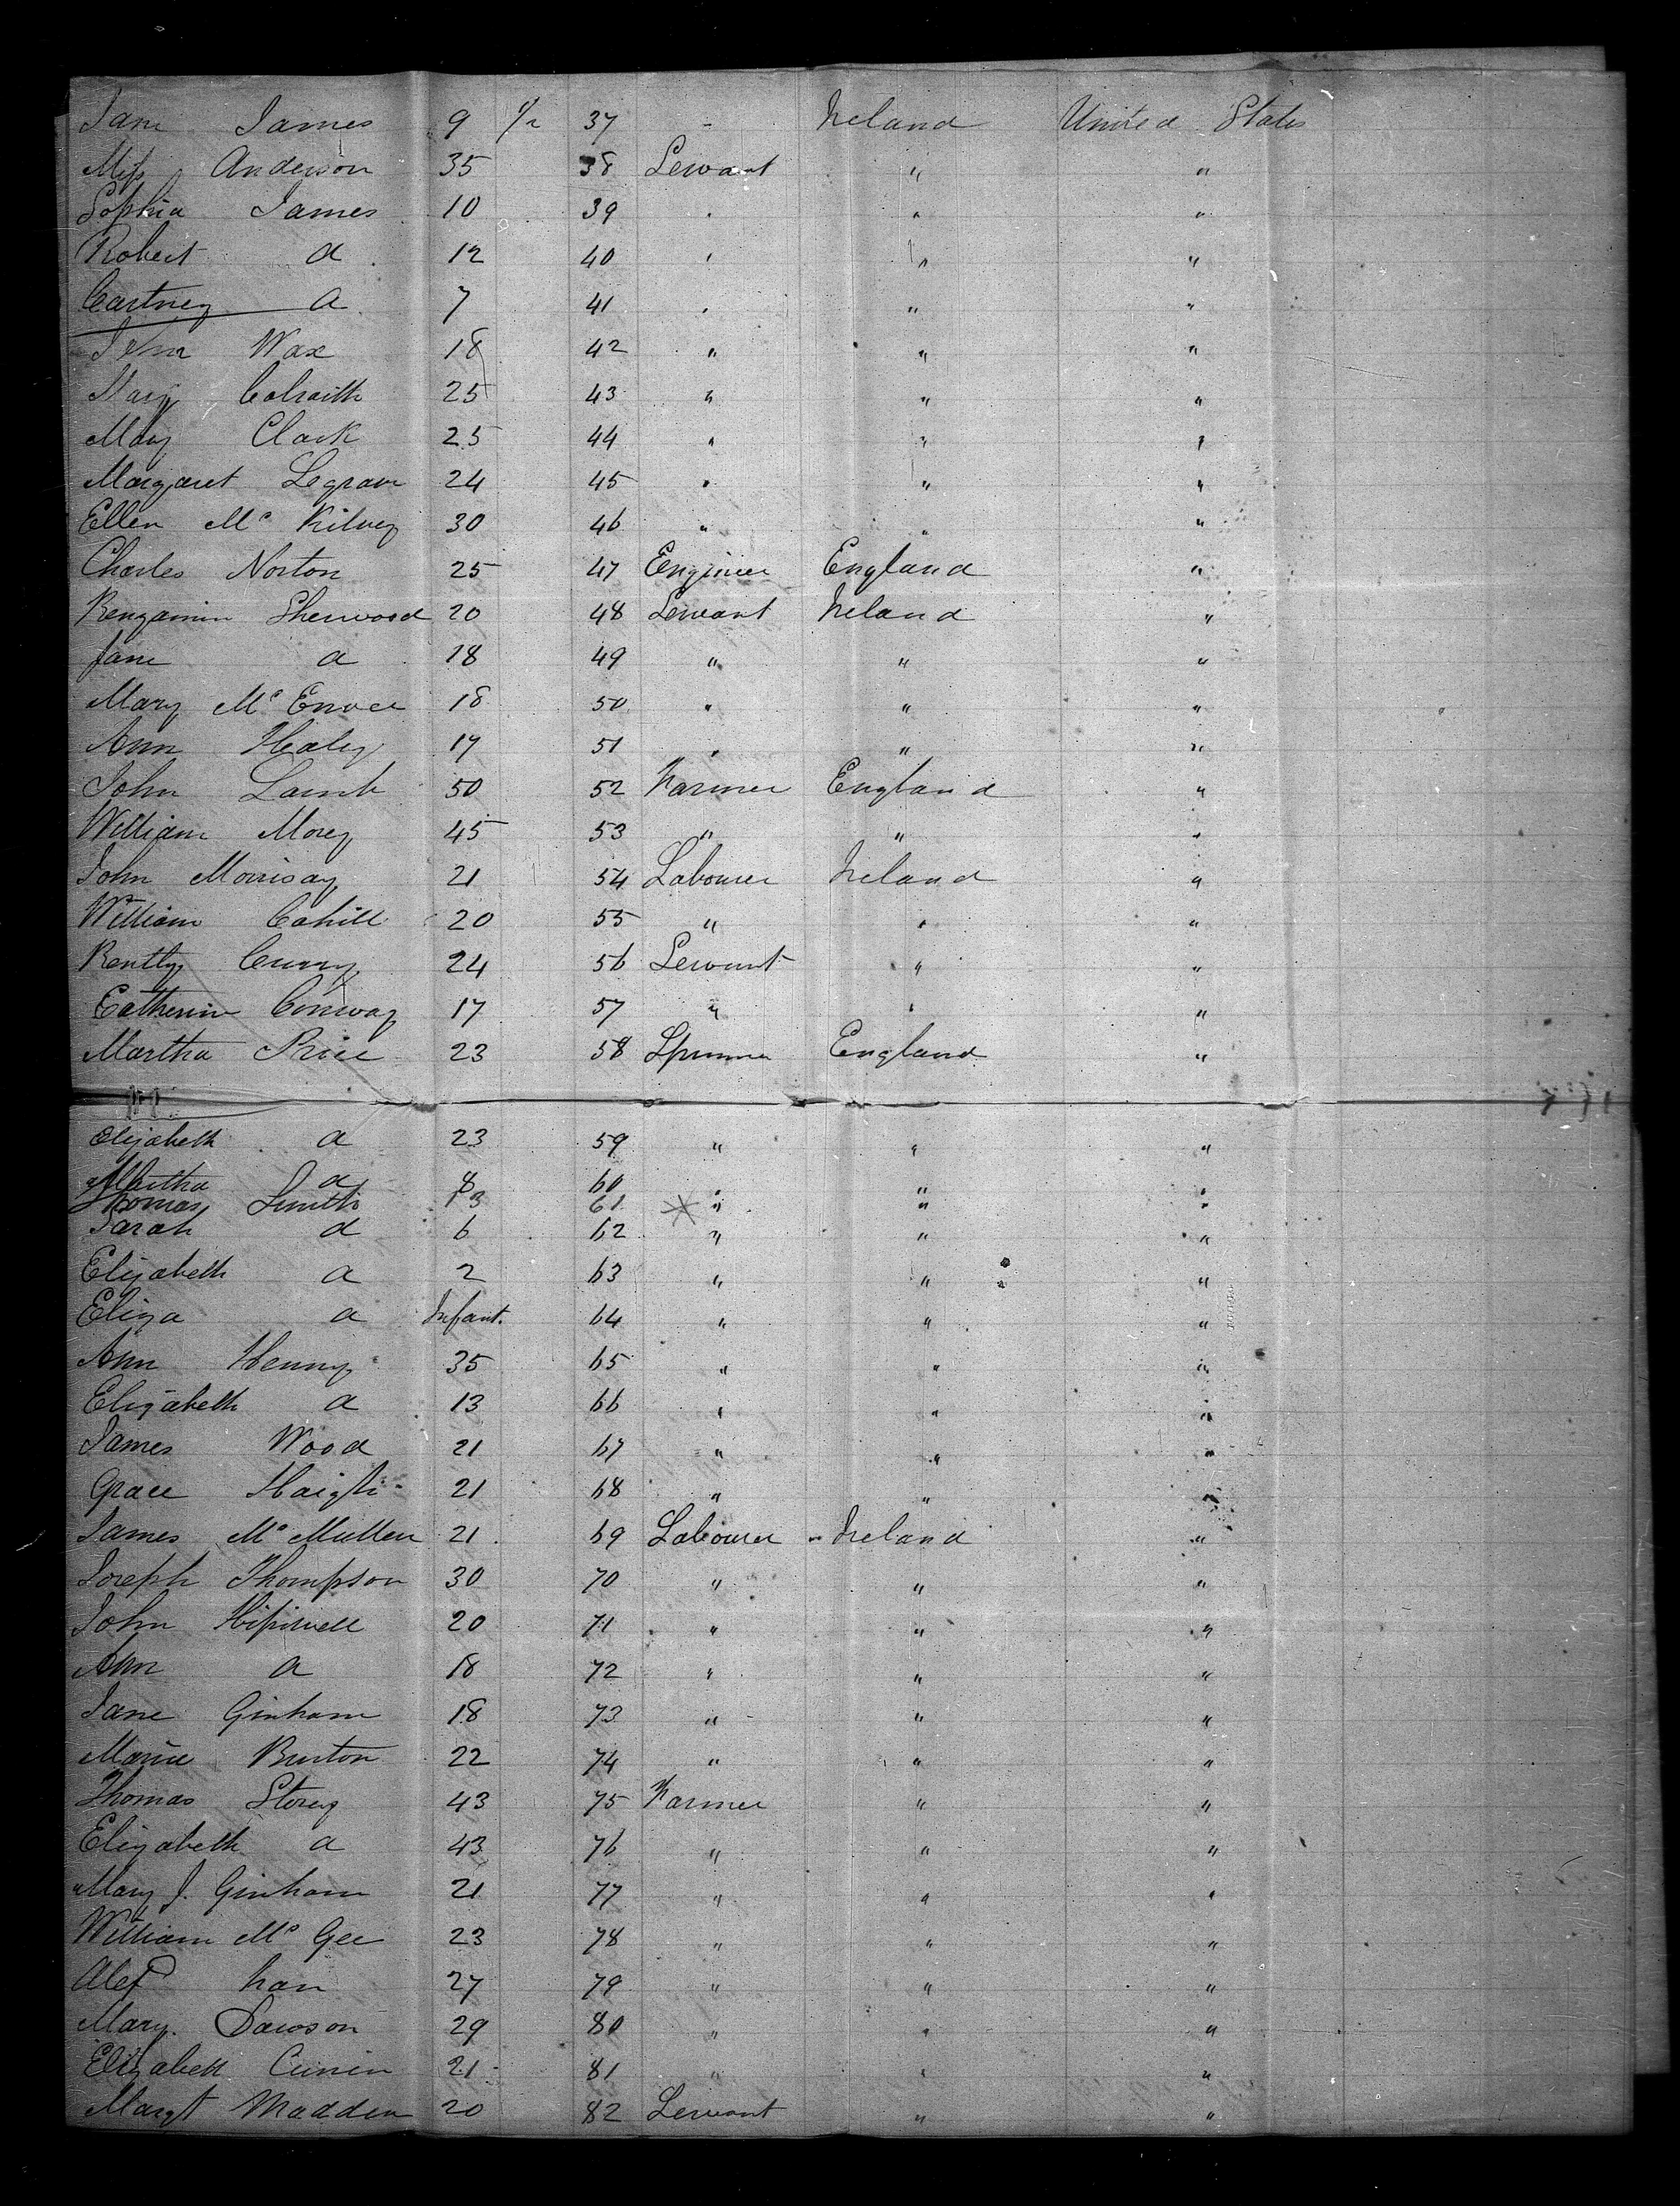 Jane James 9 1/2 37 - Ireland United States
Miss Anderson 35 38 Servant " "
Sophia James 10 39 " " "
Robert a 12 40 " " "
Cartney a 7 41 " " "
John Wax 18 42 " " "
Mary Colraith 25 43 " " "
Mary Clark 25 44 " " "
Margaret Legrave 24 45 " " "
Ellen Mc Kilvey 30 46 " " "
Charles Norton 25 47 Engineer England "
Benjamin Sherwood 20 48 Servant Ireland "
Jane a 18 49 " " "
Mary Mc Envee 18 50 " " "
Ann Haley 17 51 " " "
John Lamb 50 52 Farmer England "
William Morey 45 53 " " "
John Morrisay 21 54 Labourer Ireland "
William Cahill 20 55 " " "
Bently Curry 24 56 Servant " "
Catherine Conway 17 57 " " "
Martha Price 23 58 Spinner England "
Elizabeth a 23 59 " " "
Martha a 8 60 " " "
Thomas Smith 13 61 " " "
Sarah a 6 62 " " "
Elizabeth a 2 63 " " "
Eliza a Infant 64 " " "
Ann Henny 35 65 " " "
Elizabeth a 13 66 " " "
James Wood 21 67 " " "
Grace Haigh 21 68 " " "
James Mc Mullen 21 69 Labourer Ireland "
Joseph Thompson 30 70 " " "
John Hipwell 20 71 " " "
Ann a 18 72 " " "
Jane Ginham 18 73 " " "
Marie Burton 22 74 " " "
Thomas Storey 43 75 Farmer " "
Elizabeth a 43 76 " " "
Mary J. Ginham 21 77 " " "
William Mc Gee 23 78 " " "
Alex 27 79 " " "
Mary Dawson 29 80 " " "
Elizabeth 21 81 " " "
Margt Madden 20 82 Servant " "